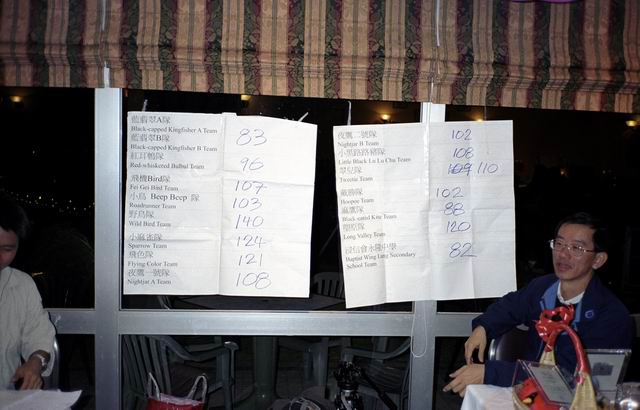 藍翡翠A隊
Black-capped Kingfisher A Team 83
藍翡翠B隊
Black-capped Kingfisher B Team
紅耳鵯隊 96
Red-whiskered Bulbul Team
飛機Bird隊 107
Fei Gei Bird Team
小鳥 Beep Beep 隊 103
Roadrunner Team
野鳥隊 140
Wild Bird Team
小麻雀隊 124
Sparrow Team
飛色隊 121
Flying Color Team
夜鷹一號隊 108
Nightjar A Team
夜鷹二號隊 102
Nightjar B Team
小黑路路豬隊 108
Little Black Lu Lu Chu Team
翠兒隊 109 110
Tweetie Team
戴勝隊 102
Hoopoe Team
麻鷹隊 88
Black-eared Kite Team
塱原隊 120
Long Valley Team
浸信會永隆中學 82
Baptist Wing Lung Secondary
School Team